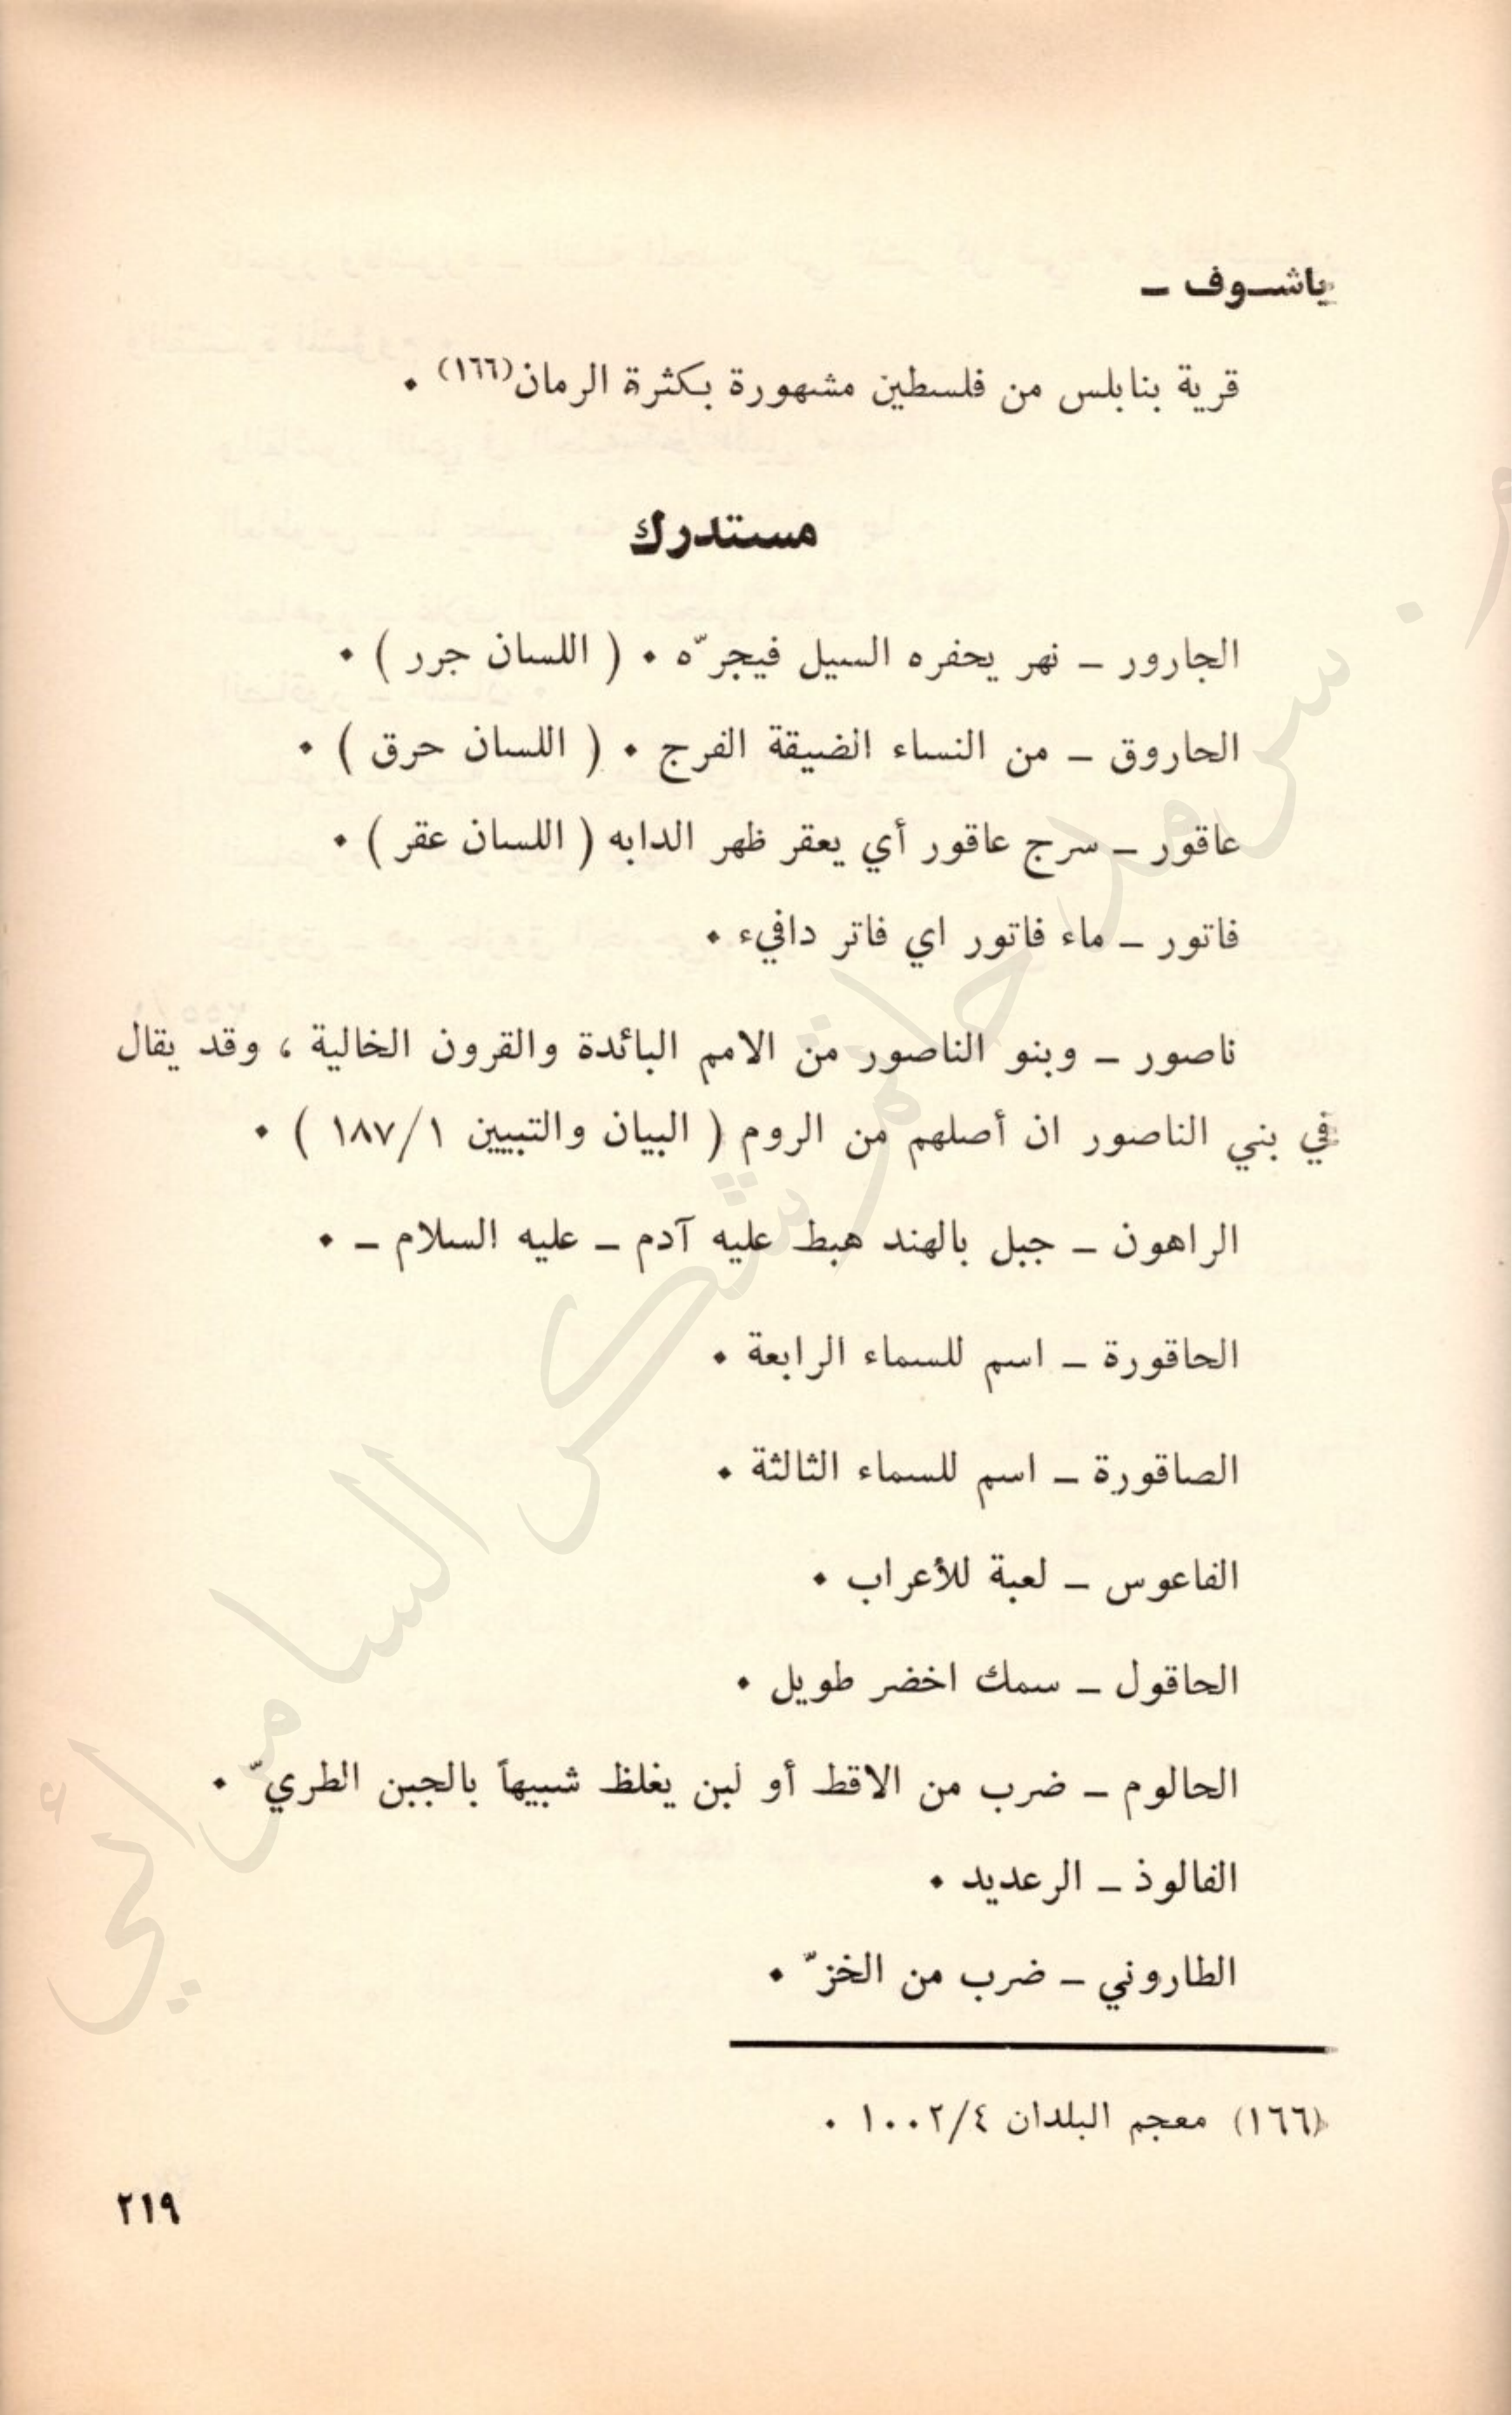 ياشـوف ـ
قرية بنابلس من فلسطين مشهورة بكثرة الرمان(١٦٦) ٠
مستدرك
الجارور ـ نهر يحفره السيل فيجرّه ٠ ( اللسان جرر ) ٠
الحاروق ـ من النساء الضيقة الفرج ٠ ( اللسان حرق ) ٠
عاقور ـ سرج عاقور أي يعقر ظهر الدابه ( اللسان عقر ) ٠
فاتور ـ ماء فاتور اي فاتر دافيء ٠
ناصور ـ وبنو الناصور من الامم البائدة والقرون الخالية ، وقد يقال
في بني الناصور ان أصلهم من الروم ( البيان والتبيين ١/١٨٧ ) ٠
الراهون ـ جبل بالهند هبط عليه آدم ـ عليه السلام ـ ٠
الحاقورة ـ اسم للسماء الرابعة ٠
الصاقورة ـ اسم للسماء الثالثة ٠
الفاعوس ـ لعبة للأعراب ٠
الحاقول ـ سمك اخضر طويل ٠
الحالوم ـ ضرب من الاقط أو لبن يغلظ شبيهاً بالجبن الطريّ ٠
الفالوذ ـ الرعديد ٠
الطاروني ـ ضرب من الخزّ ٠
(١٦٦) معجم البلدان ٤/١٠٠٢ ٠
٢١٩